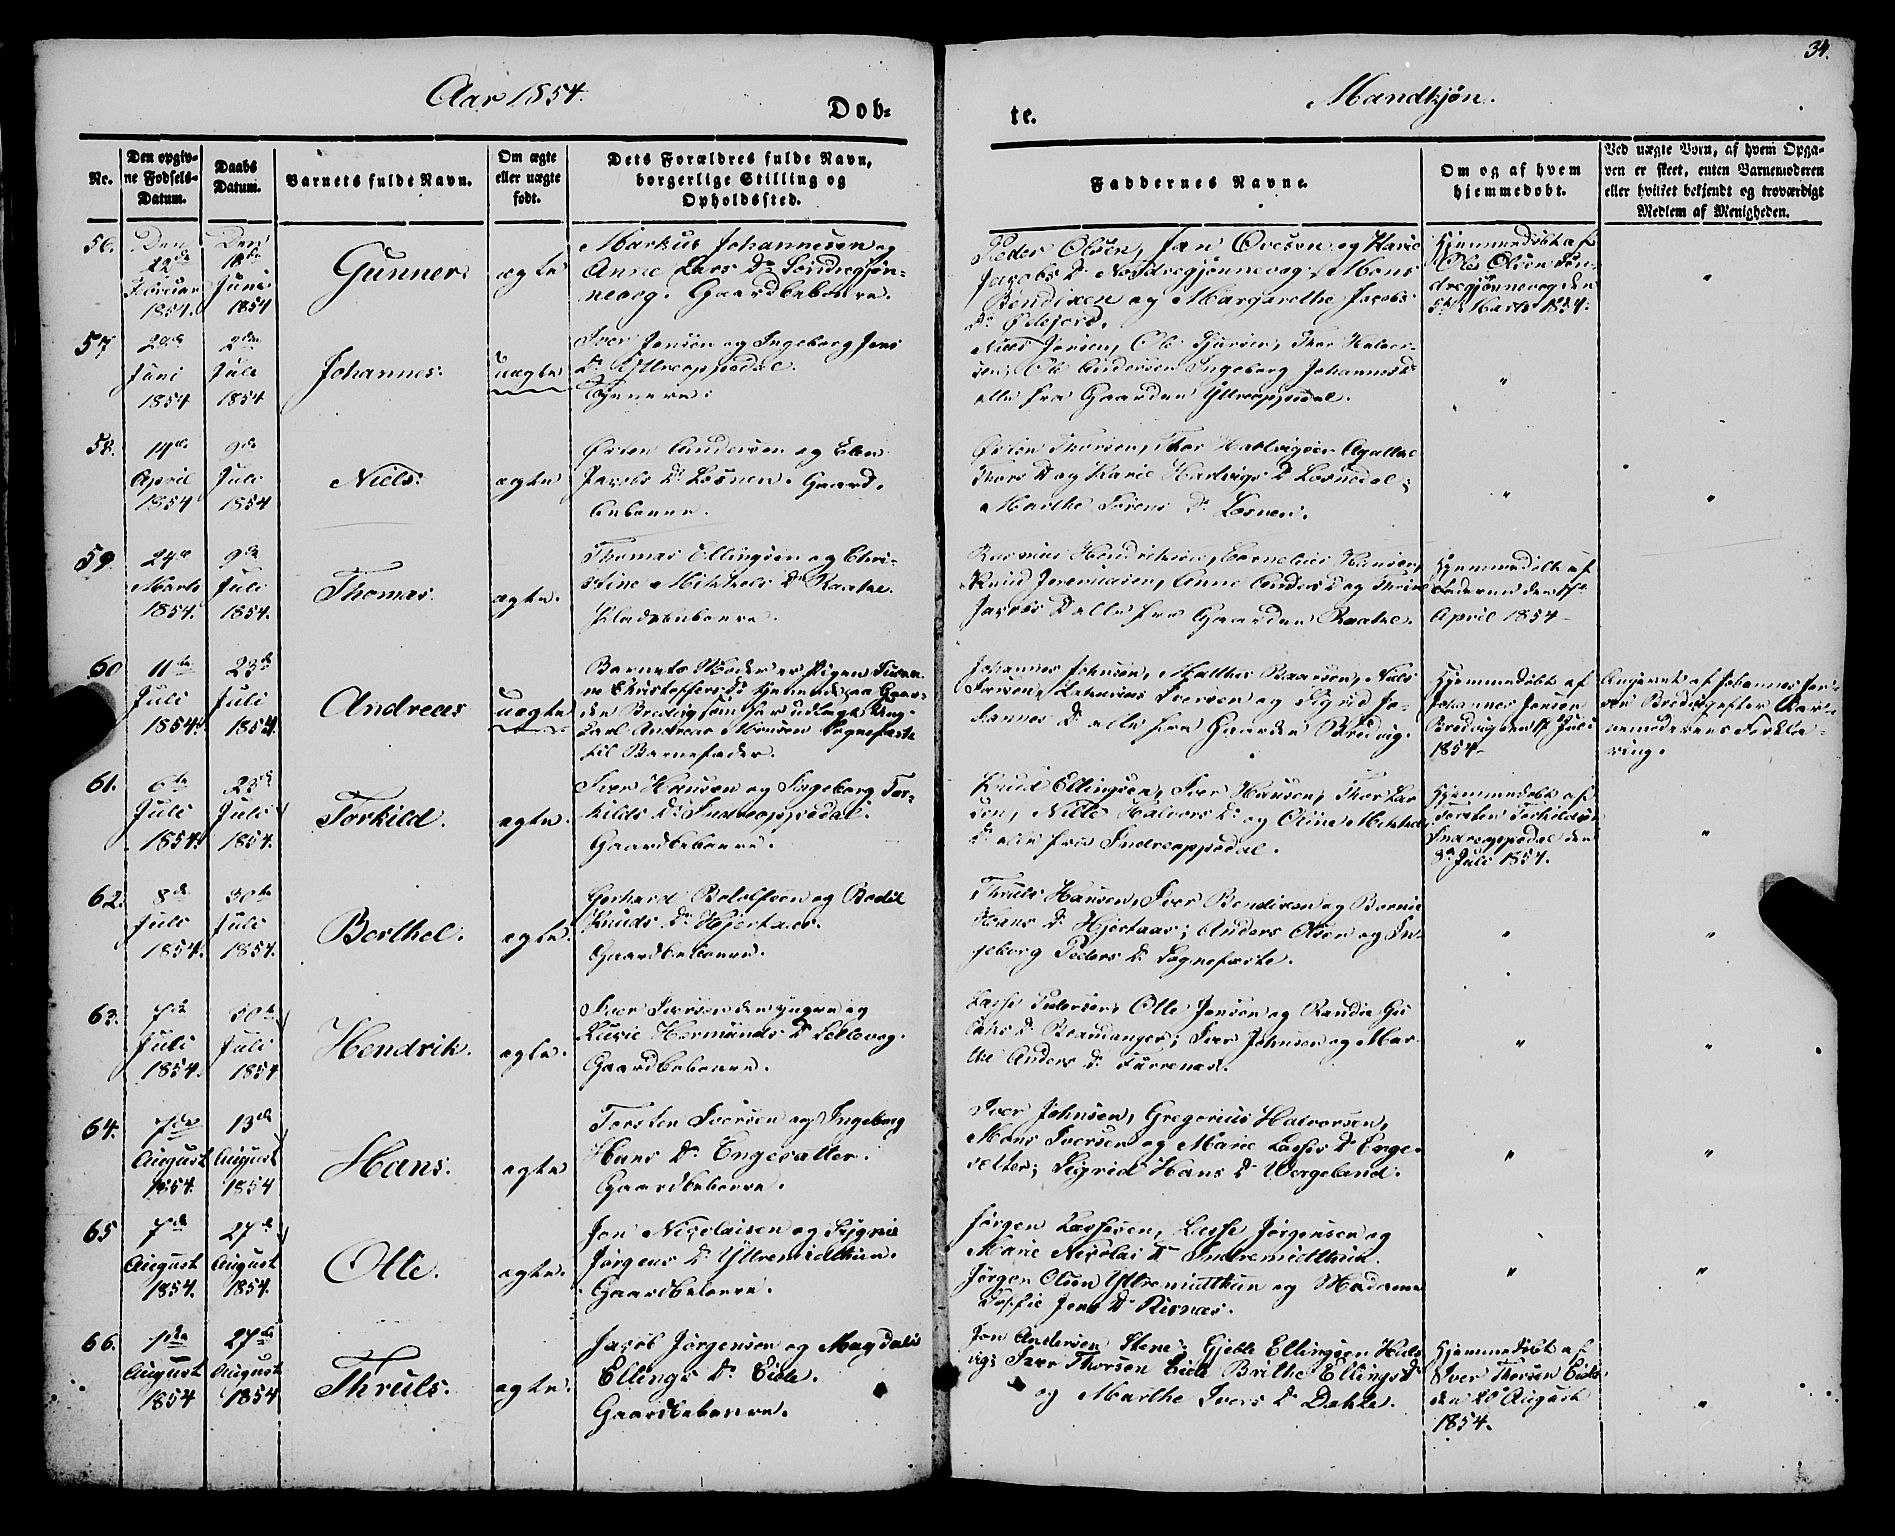 34.
Aar 1854.
Mandkjøn.
Dob-
te.
Nr.
Den opgiv-
ne Fødsels-
Datum.
Daabs
Datum.
Barnets fulde Navn.
Om ægte
eller uægte
født.
Dets Forældres fulde Navn,
borgerlige Stilling og
Opholdssted.
Faddernes Navne.
Om og af hvem
hjemmedøbt.
Ved uægte Børn, af hvem Opga-
ven er skeet, enten Barnemoderen
eller hvilket bekjendt og troværdigt
Medlem af Menigheden.
56.
Den
22de
Februar
1854.
Den
18de
Juni
1854
Gunner.
ægte
Markus Johannesen og
Anne Lars Dr Søndregjøn-
nevog. Gaardbeboere.
Peder Olsen, Jan Ovesen og Karie
Jacobs Dr Nordregjønnevog. Mons
Bendixen og Margarethe Jacobs
Dr Ødejord.
Hjemmedøbt af
Ole Olsen Søn-
dregjønnevog den
5te Marts 1854.
"
57
2den
Juni
1854
2den
Juli
1854
Johannes.
uægte
Iver Jensen og Ingeborg Jens
Dr Yttreoppedal.
Niels Jensen, Ole Sjursen, Thor Halvor-
sen, Ole Andersen Ingeborg Johannes Dr
alle fra Gaarden Yttreoppedal.
"
58.
14de
April
1854
9de
Juli
1854
Niels.
ægte
Østen Andersen og Elen
Jacobs Dr Losnen. Gaard-
beboere.
Østen Thorsen, Thor Hallvigsen Agathe
Thors D og Karie Hartvigs D Losnedal;
Marthe Sørens Dr Losnen.
"
"
59.
24de
Marts
1854.
9de
Juli
1854.
Thomas.
ægte.
Thomas Ellingsen og Chri-
stine Mikkels Dr Raahe.
Pladsbeboere.
Rasmus Hendriksen, Cornelius Hansen,
Knud Jeremiasen, Anne Anders D og Thrine
Jacobs D alle fra Gaarden Raahe.
Hjemmedøbt af
Faderen den
April 1854
60
11te
Juli
1854.
23de
Juli
1854.
Andreas
uægte
Barnets Moder er Pigen Susan-
ne Christophers Dr hjemme paa Gaar-
den Bredvig som har udlagt Ung-
karl Andreas Monsen Sognefæste
til Barnefader.
Johannes Johnsen, Malther Baarsen, Niels
Iversen, Zakarias Iversen og Sigrid Jo-
hannes Dr alle fra Gaarden Bredvig.
Hjemmedøbt af
Johannes Jonsen
Bredvig den 17 Juli
1854
Angivet af Johannes Jon-
sen Bredvig efter Bar-
nemoderens Forkla-
ring.
61.
6te
Juli
1854.
23de
Juli
1854.
Torkild.
ægte.
Iver Hansen og Ingeborg Tor-
kilds Dr Indreoppedal.
Gaardbeboere.
Knud Ellingsen, Iver Hansen, Thor Lar-
sen, Nille Halvors Dr og Oline Mikkels
Dr alle fra Indreoppedal.
Hjemmedøbt af
Torsten Torkildsen
Indreoppedal den
8de Juli 1854.
"
62.
8de
Juli
1854.
30te
Juli
1854.
Berthel.
ægte.
Gerhard Rololfsen og Bodil
Knuds Dr Hjertaas.
Gaardbeboere.
Thruls Hansen, Iver Bendixen og Bernie
Hans Dr Hjertaas; Anders Olsen og In-
geborg Peders Dr Sognefæste.
"
"
63.
7de
Juli
1854.
30te
Juli
1854
Hendrik.
ægte.
Iver Iversen den yngre og
Lucie Hermunds Dr Sellevog.
Gaardbeboere.
Lasse Pedersen, Olle Jensen og Randie Gu-
laks Dr Brandanger; Iver Johnsen og Mar-
the Anders Dr Furrenæs.
"
"
64.
7de
August
1854.
13de
August
1854
Hans.
ægte
Torsten Iversen og Ingeborg
Hans Dr Engesætter.
Gaardbeboere.
Iver Johnsen, Gregorius Halvorsen,
Mons Iversen og Marie Lasses Dr Enge-
sætter; Sigrid Hans Dr Wergeland.
"
"
65
7de
August
1854.
27de
August
1854.
Olle.
ægte.
Jon Nicolaisen og Sygnie
Jørgens Dr Yttremidthun.
Gaardbeboere.
Jørgen Lassesen, Lasse Jørgensen og
Marie Nicolai Dr Indremidthun.
Jørgen Olsen Yttremidthun og Madame
Sophie Jens Dr Risnæs.
"
"
66.
1de
August
1854
27de
August
1854
Thruls.
ægte.
Jacob Jørgensen og Magdali
Ellings Dr Eide.
Gaardbeboere.
Jon Andersen Stene; Gjeble Ellingsen
Iver Thorsen Eide Brithe Ellings Dr
og Marthe Ivers Dr Dahle.
Hjemmedøbt af
Iver Thorsen Eide
den 20 August
1854.
"